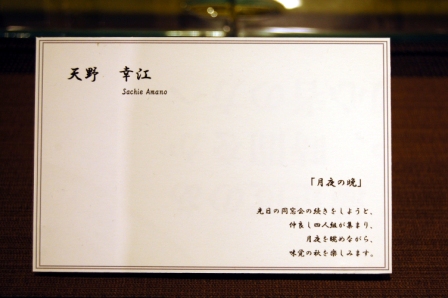 天野　幸江
Sachie Amano
「月夜の晩」
先日の同窓会の続きをしようと、
仲良し四人組が集まり、
月夜を眺めながら、
味覚の秋を楽しみます。